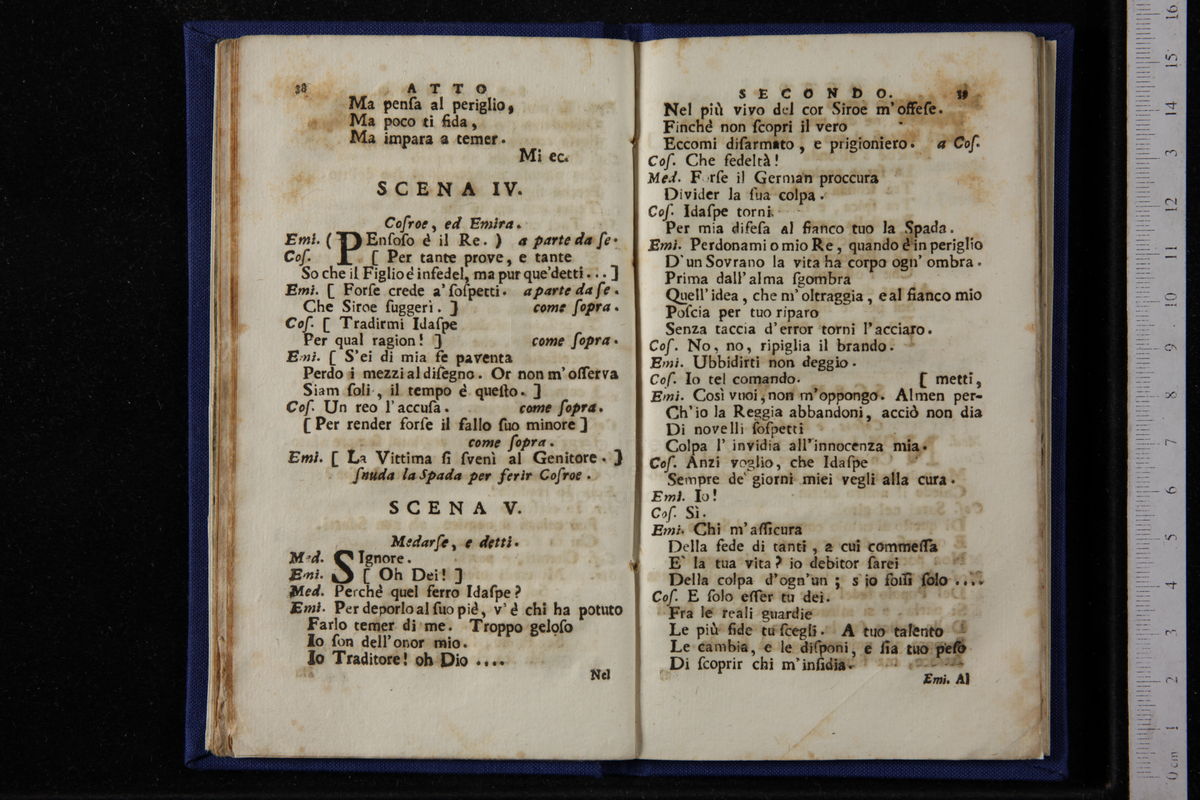 38 ATTO
Ma penſa al periglio,
Ma poco ti fida,
Ma impara a temer.
Mi ec.
SCENA IV.
Coſroe, ed Emira.
Emi. ( PEnſoſo è il Re. ) a parte da ſe.
Coſ. [ Per tante prove, e tante
So che il Figlio é infedel, ma pur que'detti... ]
Emi. [ Forſe crede a' ſoſpetti. a parte da ſe.
Che Siroe ſuggerì. ] come ſopra.
Coſ. [ Tradirmi Idaſpe
Per qual ragion! ] come ſopra.
Emi. [ S'ei di mia fe paventa
Perdo i mezzi al diſegno. Or non m'oſſerva
Siam ſoli, il tempo è queſto. ]
Coſ. Un reo l'accuſa. come ſopra.
[ Per render forſe il fallo ſuo minore ]
come ſopra.
Emi. [ La Vittima ſi ſvenì al Genitore. ]
ſnuda la Spada per ferir Coſroe.
SCENA V.
Medarſe, e detti.
Med. SIgnore.
Emi. [ Oh Dei! ]
Med. Perchè quel ferro Idaſpe?
Emi. Per deporlo al ſuo piè, v'é chi ha potuto
Farlo temer di me. Troppo geloſo
Io ſon dell'onor mio.
Io Traditore! oh Dio ....
Nel
SECONDO. 39
Nel più vivo del cor Siroe m'offeſe.
Finchè non ſcopri il vero
Eccomi diſarmato, e prigioniero. a Coſ.
Coſ. Che fedeltà!
Med. Forſe il German proccura
Divider la ſua colpa.
Coſ. Idaſpe torni
Per mia difeſa al fianco tuo la Spada.
Emi. Perdonami o mio Re, quando è in periglio
D'un Sovrano la vita ha corpo ogn' ombra.
Prima dall'alma ſgombra
Quell'idea, che m'oltraggia, e al fianco mio
Poſcia per tuo riparo
Senza taccia d'error torni l'acciaro.
Coſ. No, no, ripiglia il brando.
Emi. Ubbidirti non deggio.
Coſ. Io tel comando. [ metti,
Emi. Così vuoi, non m'oppongo. Almen per-
Ch'io la Reggia abbandoni, acciò non dia
Di novelli ſoſpetti
Colpa l' invidia all'innocenza mia.
Coſ. Anzi voglio, che Idaſpe
Sempre de' giorni miei vegli alla cura.
Emi. Io!
Coſ. Sì.
Emi. Chi m'aſſicura
Della fede di tanti, a cui commeſſa
E' la tua vita? io debitor ſarei
Della colpa d'ogn'un; s'io foſſi ſolo ....
Coſ. E ſolo eſſer tu dei.
Fra le reali guardie
Le più fide tu ſcegli. A tuo talento
Le cambia, e le diſponi, e ſia tuo peſo
Di ſcoprir chi m'inſidia.
Emi. Al
0 cm 1 2 3 4 5 6 7 8 9 10 11 12 13 14 15 16